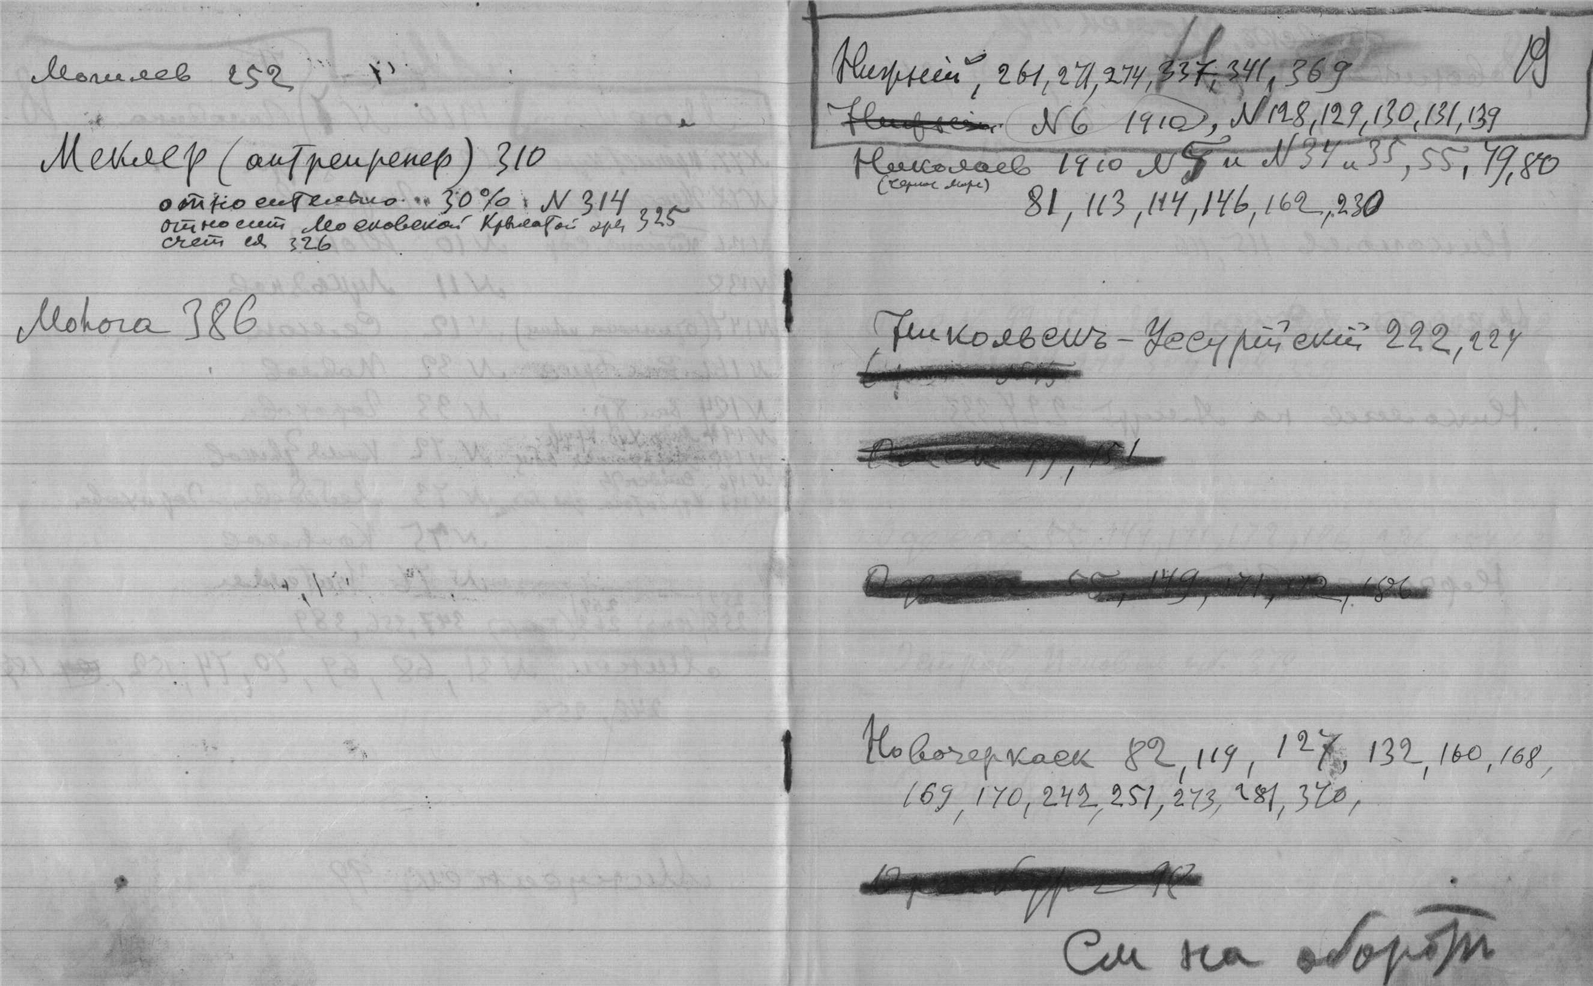 Могилев 252
Меклер (антрепренер) 310
относительно 30% N 314
относит Московской 325
счет 326
Мокога 386
19
Нижний, 261, 271, 274, 337, 341, 369
N 6 1910, N 128, 129, 130, 131, 139
Николаев 1910 N 5 и N 34 и 35, 55, 79, 80
(Черное море)
81, 113, 114, 146, 162, 230
Никольскъ-Уссурiйскiй 222, 224
Омск 99, 151
Одесса 55, 149, 171, 172, 186
Новочеркаск 82, 119, 127, 132, 160, 168,
169, 170, 242, 251, 273, 281, 370,
См на оборот